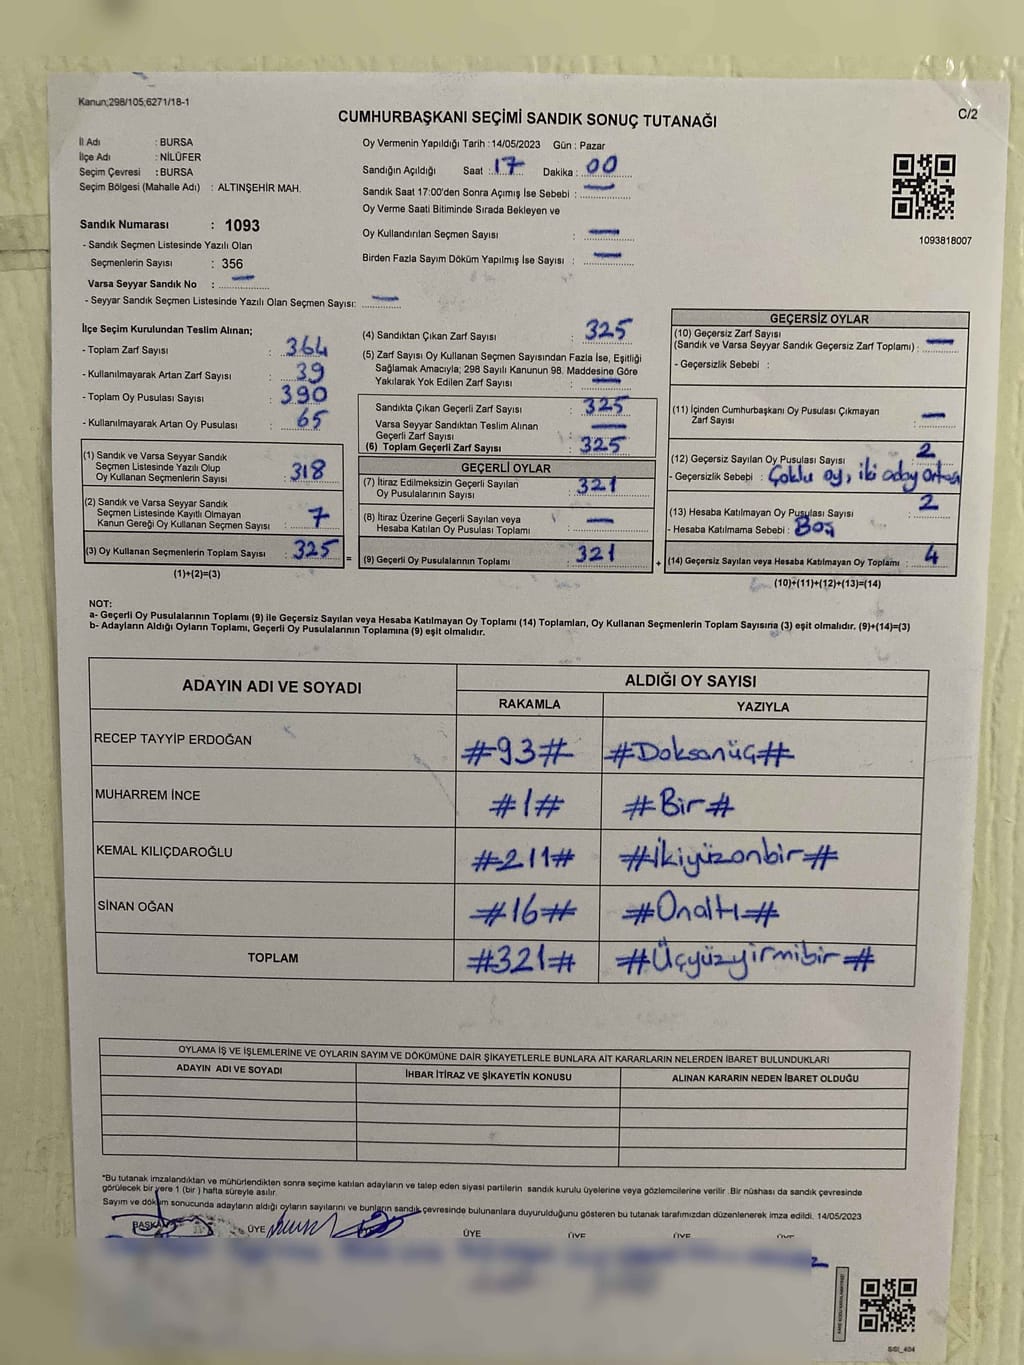 Kanun;298/105;6271/18-1
C/2
CUMHURBAŞKANI SEÇİMİ SANDIK SONUÇ TUTANAĞI
İl Adı : BURSA
İlçe Adı : NİLÜFER
Seçim Çevresi : BURSA
Seçim Bölgesi (Mahalle Adı) : ALTINŞEHİR MAH.
Sandık Numarası : 1093
- Sandık Seçmen Listesinde Yazılı Olan
Seçmenlerin Sayısı : 356
Varsa Seyyar Sandık No : —
- Seyyar Sandık Seçmen Listesinde Yazılı Olan Seçmen Sayısı: —
Oy Vermenin Yapıldığı Tarih : 14/05/2023 Gün : Pazar
Sandığın Açıldığı Saat : 17 Dakika : 00
Sandık Saat 17:00'den Sonra Açımış İse Sebebi : —
Oy Verme Saati Bitiminde Sırada Bekleyen ve
Oy Kullandırılan Seçmen Sayısı : —
Birden Fazla Sayım Döküm Yapılmış İse Sayısı : —
1093818007
İlçe Seçim Kurulundan Teslim Alınan;
- Toplam Zarf Sayısı : 364
- Kullanılmayarak Artan Zarf Sayısı : 39
- Toplam Oy Pusulası Sayısı : 390
- Kullanılmayarak Artan Oy Pusulası : 65
(1) Sandık ve Varsa Seyyar Sandık
Seçmen Listesinde Yazılı Olup
Oy Kullanan Seçmenlerin Sayısı : 318
(2) Sandık ve Varsa Seyyar Sandık
Seçmen Listesinde Kayıtlı Olmayan
Kanun Gereği Oy Kullanan Seçmen Sayısı : 7
(3) Oy Kullanan Seçmenlerin Toplam Sayısı : 325 =
(1)+(2)=(3)
(4) Sandıktan Çıkan Zarf Sayısı : 325
(5) Zarf Sayısı Oy Kullanan Seçmen Sayısından Fazla İse, Eşitliği
Sağlamak Amacıyla; 298 Sayılı Kanunun 98. Maddesine Göre
Yakılarak Yok Edilen Zarf Sayısı : —
Sandıkta Çıkan Geçerli Zarf Sayısı : 325
Varsa Seyyar Sandıktan Teslim Alınan
Geçerli Zarf Sayısı : —
(6) Toplam Geçerli Zarf Sayısı : 325
GEÇERLİ OYLAR
(7) İtiraz Edilmeksizin Geçerli Sayılan
Oy Pusulalarının Sayısı : 321
(8) İtiraz Üzerine Geçerli Sayılan veya
Hesaba Katılan Oy Pusulası Toplamı : —
(9) Geçerli Oy Pusulalarının Toplamı : 321 +
GEÇERSİZ OYLAR
(10) Geçersiz Zarf Sayısı
(Sandık ve Varsa Seyyar Sandık Geçersiz Zarf Toplamı) : —
- Geçersizlik Sebebi :
(11) İçinden Cumhurbaşkanı Oy Pusulası Çıkmayan
Zarf Sayısı : —
(12) Geçersiz Sayılan Oy Pusulası Sayısı : 2
- Geçersizlik Sebebi : Çoklu oy, iki aday ortası
(13) Hesaba Katılmayan Oy Pusulası Sayısı : 2
- Hesaba Katılmama Sebebi : Boş
(14) Geçersiz Sayılan veya Hesaba Katılmayan Oy Toplamı : 4
(10)+(11)+(12)+(13)=(14)
NOT:
a- Geçerli Oy Pusulalarının Toplamı (9) ile Geçersiz Sayılan veya Hesaba Katılmayan Oy Toplamı (14) Toplamları, Oy Kullanan Seçmenlerin Toplam Sayısına (3) eşit olmalıdır. (9)+(14)=(3)
b- Adayların Aldığı Oyların Toplamı, Geçerli Oy Pusulalarının Toplamına (9) eşit olmalıdır.
ADAYIN ADI VE SOYADI
ALDIĞI OY SAYISI
RAKAMLA YAZIYLA
RECEP TAYYİP ERDOĞAN #93# #Doksanüç#
MUHARREM İNCE #1# #Bir#
KEMAL KILIÇDAROĞLU #211# #İkiyüzonbir#
SİNAN OĞAN #16# #Onaltı#
TOPLAM #321# #Üçyüzyirmibir#
OYLAMA İŞ VE İŞLEMLERİNE VE OYLARIN SAYIM VE DÖKÜMÜNE DAİR ŞİKAYETLERLE BUNLARA AİT KARARLARIN NELERDEN İBARET BULUNDUKLARI
ADAYIN ADI VE SOYADI İHBAR İTİRAZ VE ŞİKAYETİN KONUSU ALINAN KARARIN NEDEN İBARET OLDUĞU
*Bu tutanak imzalandıktan ve mühürlendikten sonra seçime katılan adayların ve talep eden siyasi partilerin sandık kurulu üyelerine veya gözlemcilerine verilir. Bir nüshası da sandık çevresinde
görülecek bir yere 1 (bir) hafta süreyle asılır.
Sayım ve döküm sonucunda adayların aldığı oyların sayılarını ve bunların sandık çevresinde bulunanlara duyurulduğunu gösteren bu tutanak tarafımızdan düzenlenerek imza edildi. 14/05/2023
BAŞKAN ÜYE ÜYE ÜYE ÜYE ÜYE
SSI_404